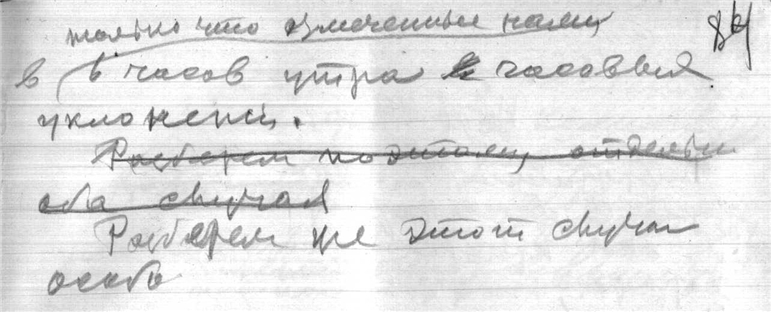 только что отмеченные нами
84
в 6 часов утра в часовыя
уклонения.
Разберем поэтому отдельно
оба случая
Разберем же этот случай
особо